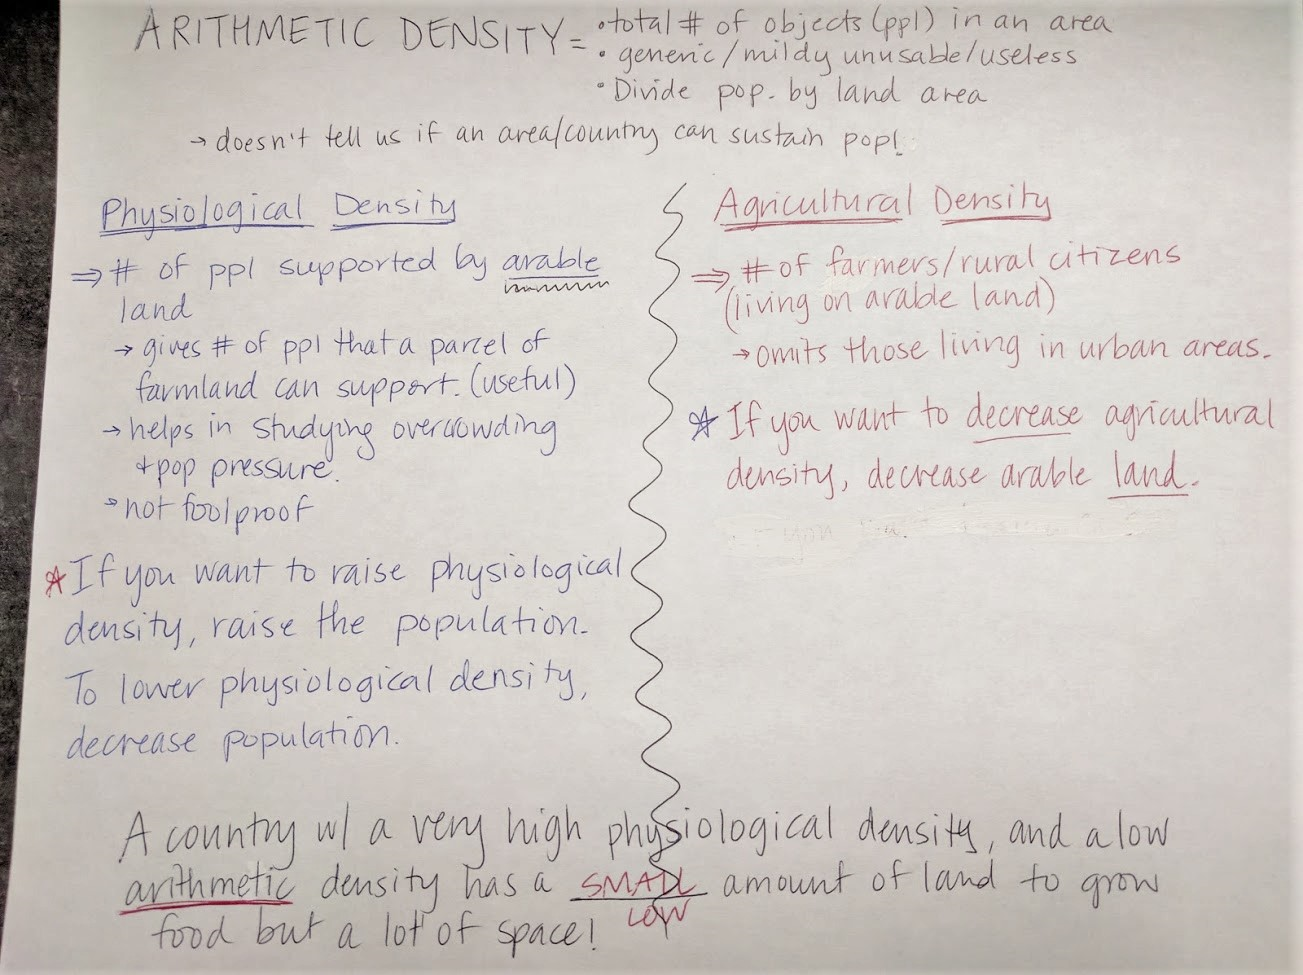 ARITHMETIC DENSITY = • total # of objects (ppl) in an area
• generic/mildy unusable/useless
• Divide pop. by land area
→ doesn't tell us if an area/country can sustain pop!
Physiological Density
⇒ # of ppl supported by arable
land
→ gives # of ppl that a parcel of
farmland can support. (useful)
→ helps in studying overcrowding
+ pop pressure.
→ not foolproof
☆ If you want to raise physiological
density, raise the population.
To lower physiological density,
decrease population.
Agricultural Density
⇒ # of farmers/rural citizens
(living on arable land)
→ omits those living in urban areas.
☆ If you want to decrease agricultural
density, decrease arable land.
A country w/ a very high physiological density, and a low
arithmetic density has a SMALL amount of land to grow
LOW
food but a lot of space!